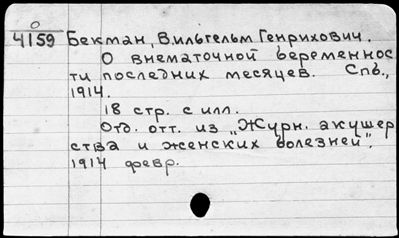 О
4159 Бекман, Вильгельм Генрихович.
О внематочной беременнос
ти последних месяцев. Спб.,
1914.
18 стр. с илл.
Отд. отт. из „Журн. акушер
ства и женских болезней".
1914 февр.